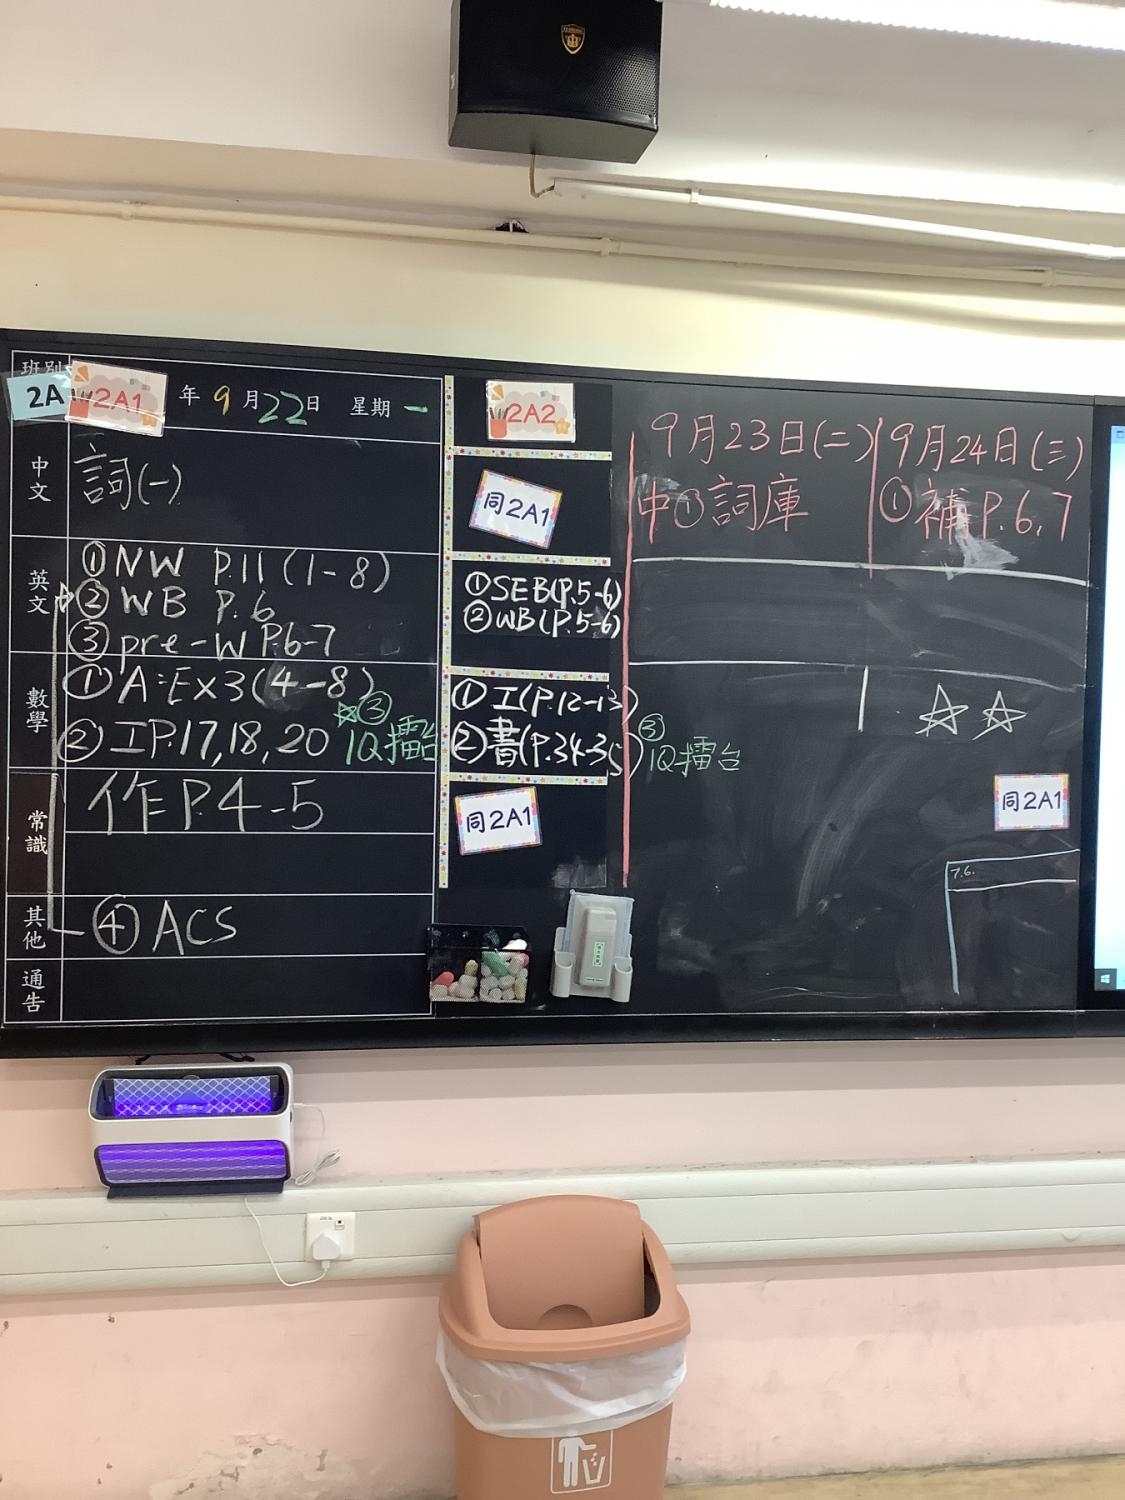 班別
2A
2A1
年9月22日 星期一
中文
詞(一)
英文
①NW P.11(1-8)
②WB P.6
③pre-W P.6-7
數學
①A:Ex3(4-8)
②工P.17,18,20
☆③
IQ擂台
常識
作P.4-5
其他
④ACS
通告
2A2
同2A1
①SEB(P.5-6)
②WB(P.5-6)
①工(P.12-13)
②書(P.34-35)
③
IQ擂台
同2A1
9月23日(二)
中①詞庫
9月24日(三)
①補P.6,7
☆☆
同2A1
7.6.